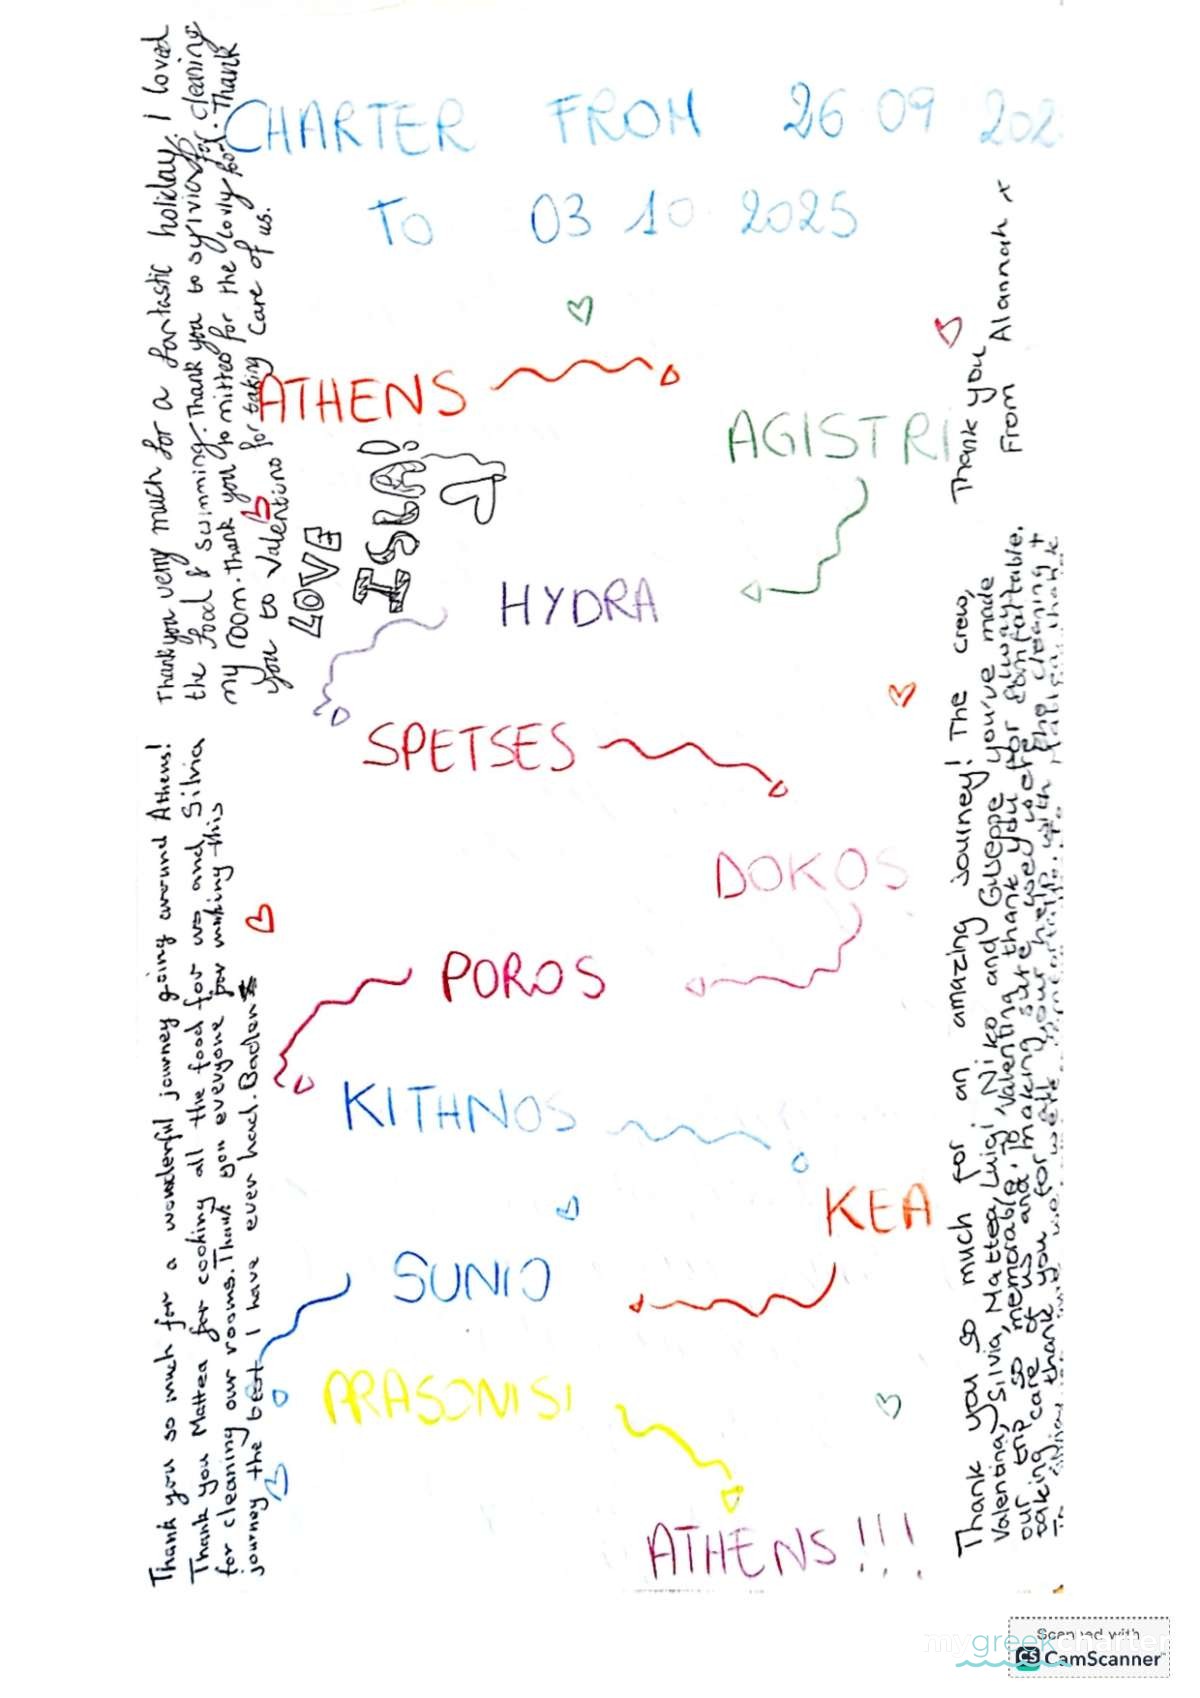 CHARTER FROM 26 09 202
TO 03 10 2025
ATHENS
AGISTRI
HYDRA
SPETSES
DOKOS
POROS
KITHNOS
KEA
SUNIO
ARASONISI
ATHENS!!!
Thank you very much for a fantastic holiday. I loved
the food & swimming. Thank you to sylvia for cleaning
my room. Thank you to mitteo for the lovly food. Thank
you to Valentino for taking care of us.
LOVE
ISLA!
Thank you so much for a wonderful journey going around Athens!
Thank you Mattea for cooking all the food for us and Silvia
for cleaning our rooms. Thank you everyone for making this
journey the best I have ever had.
Thank you so much for an amazing journey! The crew,
Valentina, Silvia, Mattea, Luigi, Niko and Giuseppe you've made
our trip so memorable. To Valentina thank you for always
taking care of us and making sure we were comfortable.
thank you for your help with the cleaning +
Thank you
From Alannah x
Scanned with
CS CamScanner
mygreekcharter